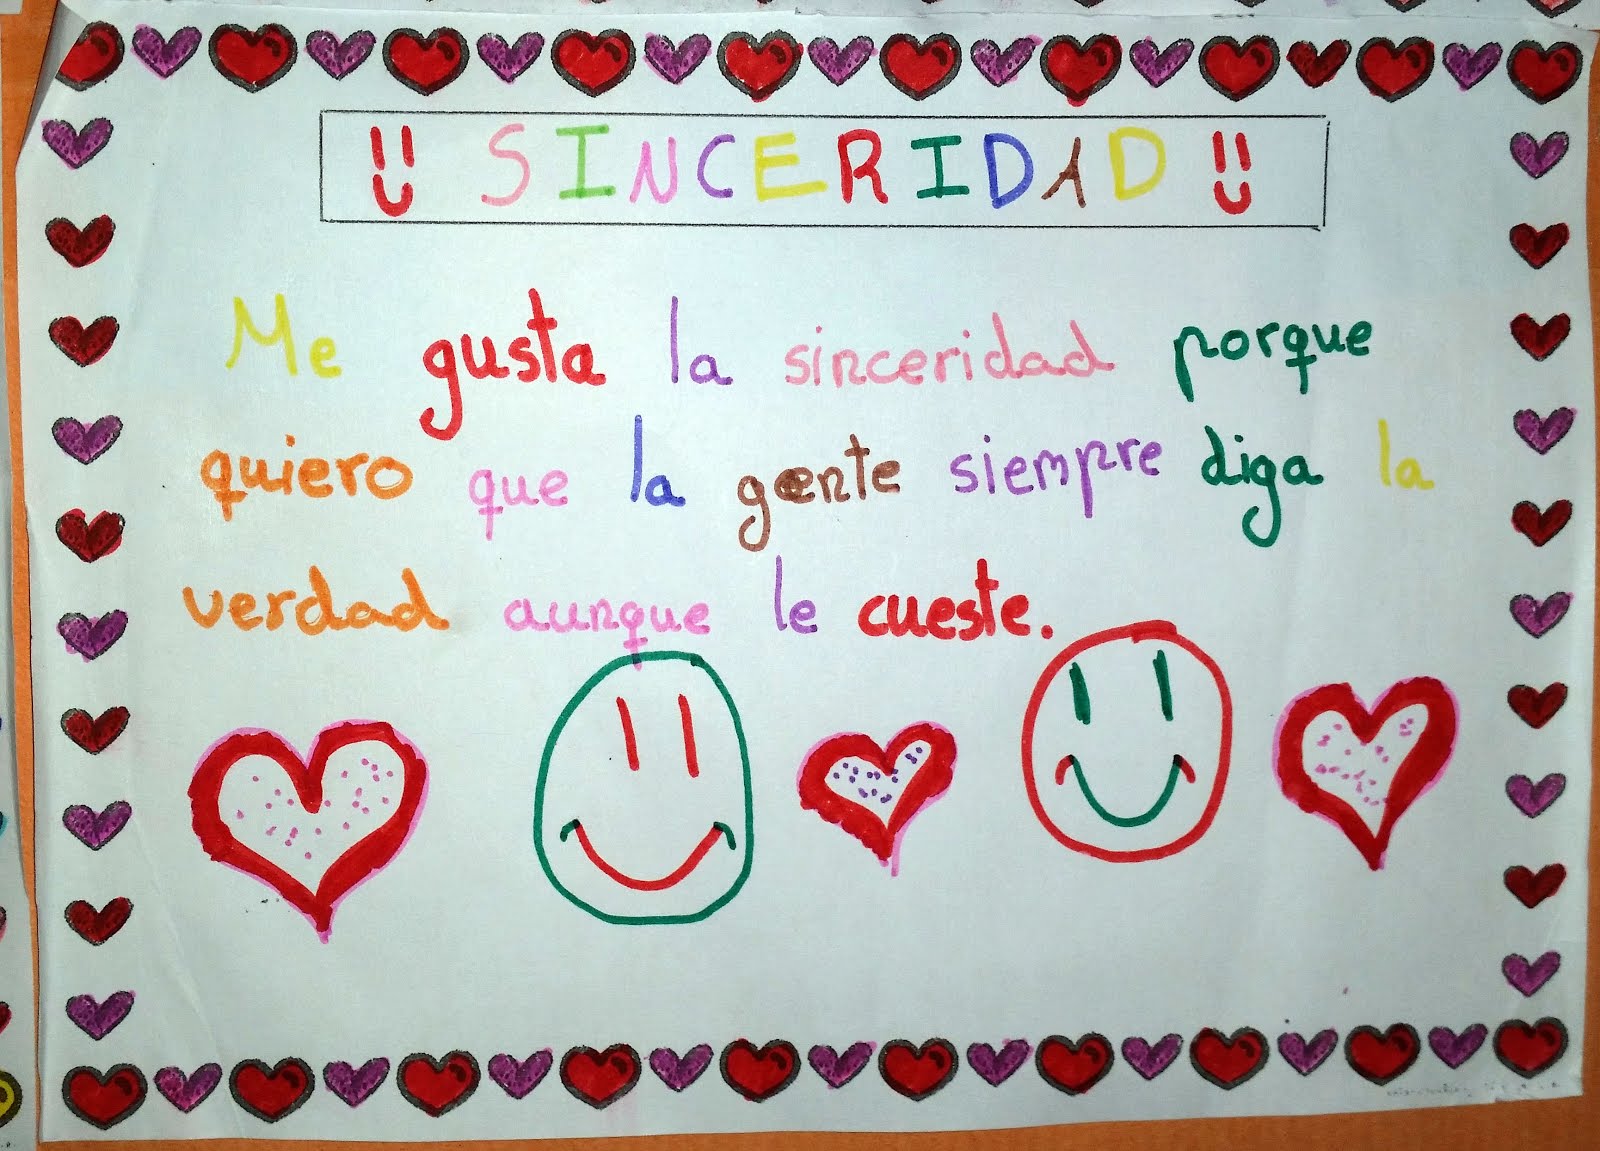 SINCERIDAD
Me gusta la sinceridad porque
quiero que la gente siempre diga la
verdad aunque le cueste.